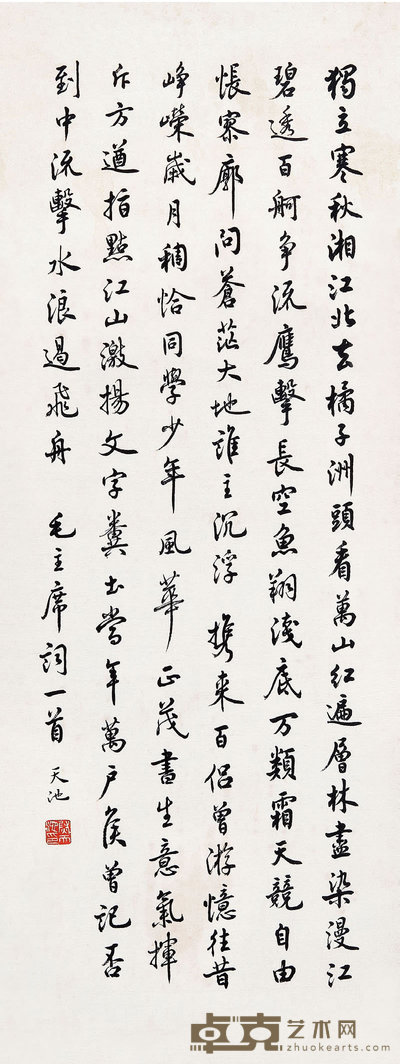 獨立寒秋湘江北去橘子洲頭看萬山紅遍層林盡染漫江
碧透百舸争流鷹擊長空魚翔淺底万類霜天競自由
悵寥廓問蒼茫大地誰主沉浮 携来百侣曾游憶往昔
崢嶸歲月稠恰同學少年風華正茂書生意氣揮
斥方遒指點江山激揚文字糞土當年萬户侯曾記否
到中流擊水浪遏飛舟 毛主席詞一首 天池
卓克艺术网
zhuokearts.com